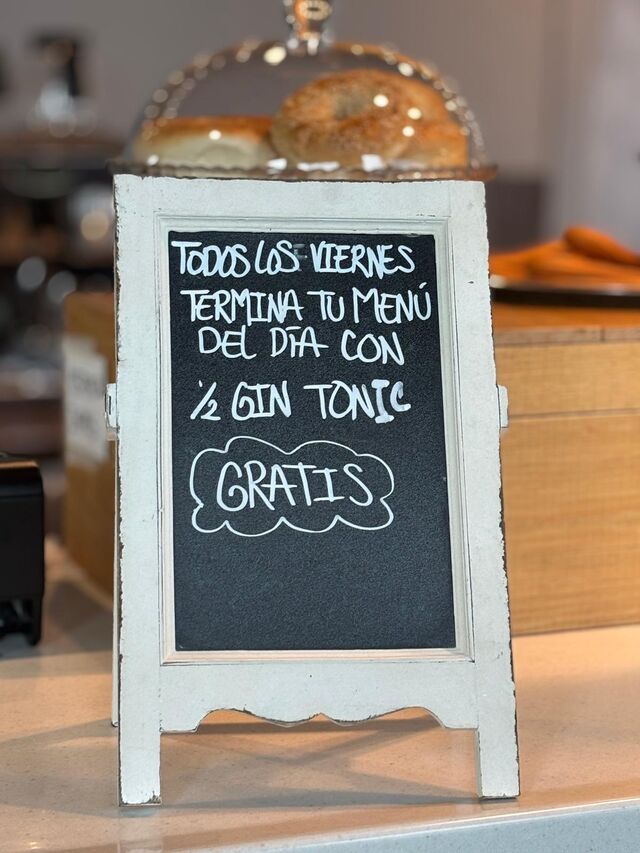 TODOS LOS VIERNES
TERMINA TU MENÚ
DEL DÍA CON
½ GIN TONIC
GRATIS